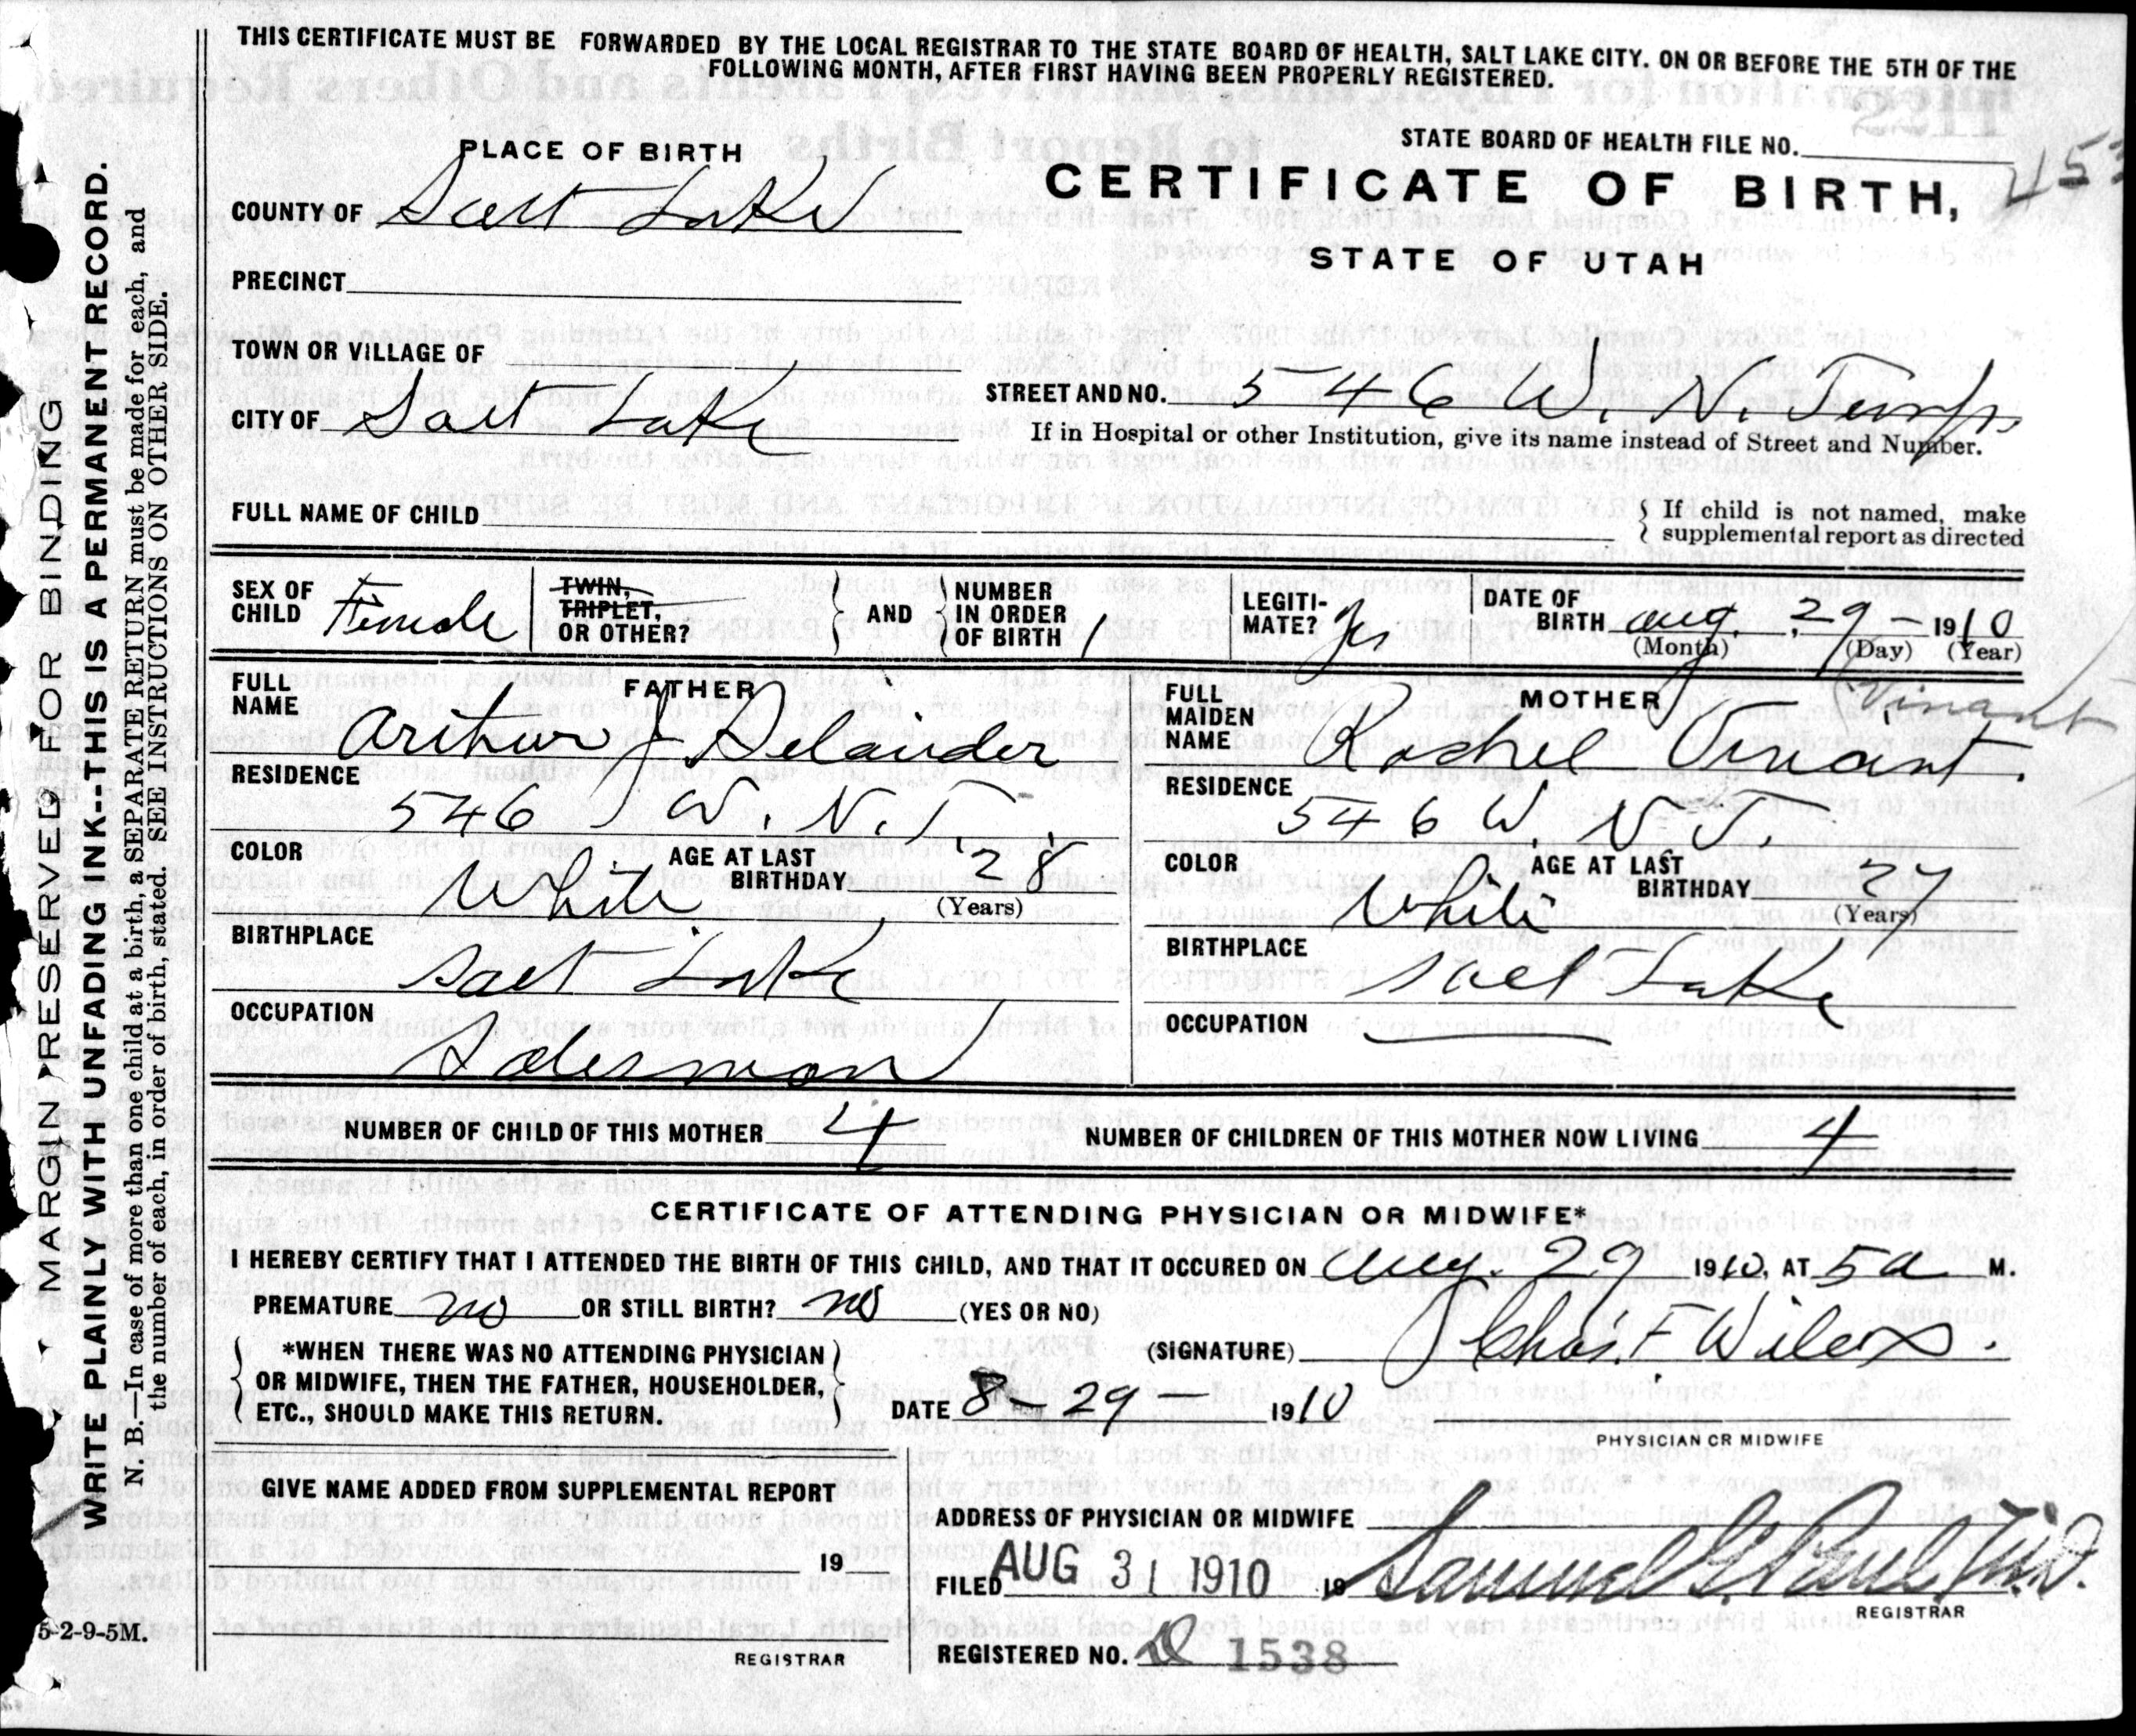 THIS CERTIFICATE MUST BE FORWARDED BY THE LOCAL REGISTRAR TO THE STATE BOARD OF HEALTH, SALT LAKE CITY. ON OR BEFORE THE 5TH OF THE
FOLLOWING MONTH, AFTER FIRST HAVING BEEN PROPERLY REGISTERED.
STATE BOARD OF HEALTH FILE NO.
453
PLACE OF BIRTH
CERTIFICATE OF BIRTH,
STATE OF UTAH
COUNTY OF Salt Lake
PRECINCT
TOWN OR VILLAGE OF
CITY OF Salt Lake
STREET AND NO. 546 W. N. Temp.
If in Hospital or other Institution, give its name instead of Street and Number.
FULL NAME OF CHILD
If child is not named, make
supplemental report as directed
SEX OF CHILD Female
TWIN, TRIPLET, OR OTHER?
AND
NUMBER IN ORDER OF BIRTH 1
LEGITI-MATE? Yes
DATE OF BIRTH Aug. 29 - 1910
(Month) (Day) (Year)
FATHER
FULL NAME Arthur J Delander
RESIDENCE 546 W. N. T.
COLOR White
AGE AT LAST BIRTHDAY 28
(Years)
BIRTHPLACE Salt Lake
OCCUPATION Salesman
MOTHER
Vinant
FULL MAIDEN NAME Rachel Vinant.
RESIDENCE 546 W. N T.
COLOR White
AGE AT LAST BIRTHDAY 27
(Years)
BIRTHPLACE Salt Lake
OCCUPATION
NUMBER OF CHILD OF THIS MOTHER 4
NUMBER OF CHILDREN OF THIS MOTHER NOW LIVING 4
CERTIFICATE OF ATTENDING PHYSICIAN OR MIDWIFE*
I HEREBY CERTIFY THAT I ATTENDED THE BIRTH OF THIS CHILD, AND THAT IT OCCURED ON Aug. 29 1910, AT 5 a M.
PREMATURE no OR STILL BIRTH? no (YES OR NO)
(SIGNATURE) Chas. F Wilcox.
*WHEN THERE WAS NO ATTENDING PHYSICIAN
OR MIDWIFE, THEN THE FATHER, HOUSEHOLDER,
ETC., SHOULD MAKE THIS RETURN.
DATE 8-29 1910
PHYSICIAN OR MIDWIFE
GIVE NAME ADDED FROM SUPPLEMENTAL REPORT
19
REGISTRAR
ADDRESS OF PHYSICIAN OR MIDWIFE
FILED AUG 31 1910 19 Samuel G. Paul M.D.
REGISTRAR
REGISTERED NO. 1538
MARGIN RESERVED FOR BINDING
WRITE PLAINLY WITH UNFADING INK--THIS IS A PERMANENT RECORD.
N. B.—In case of more than one child at a birth, a SEPARATE RETURN must be made for each, and
the number of each, in order of birth, stated. SEE INSTRUCTIONS ON OTHER SIDE.
5-2-9-5M.